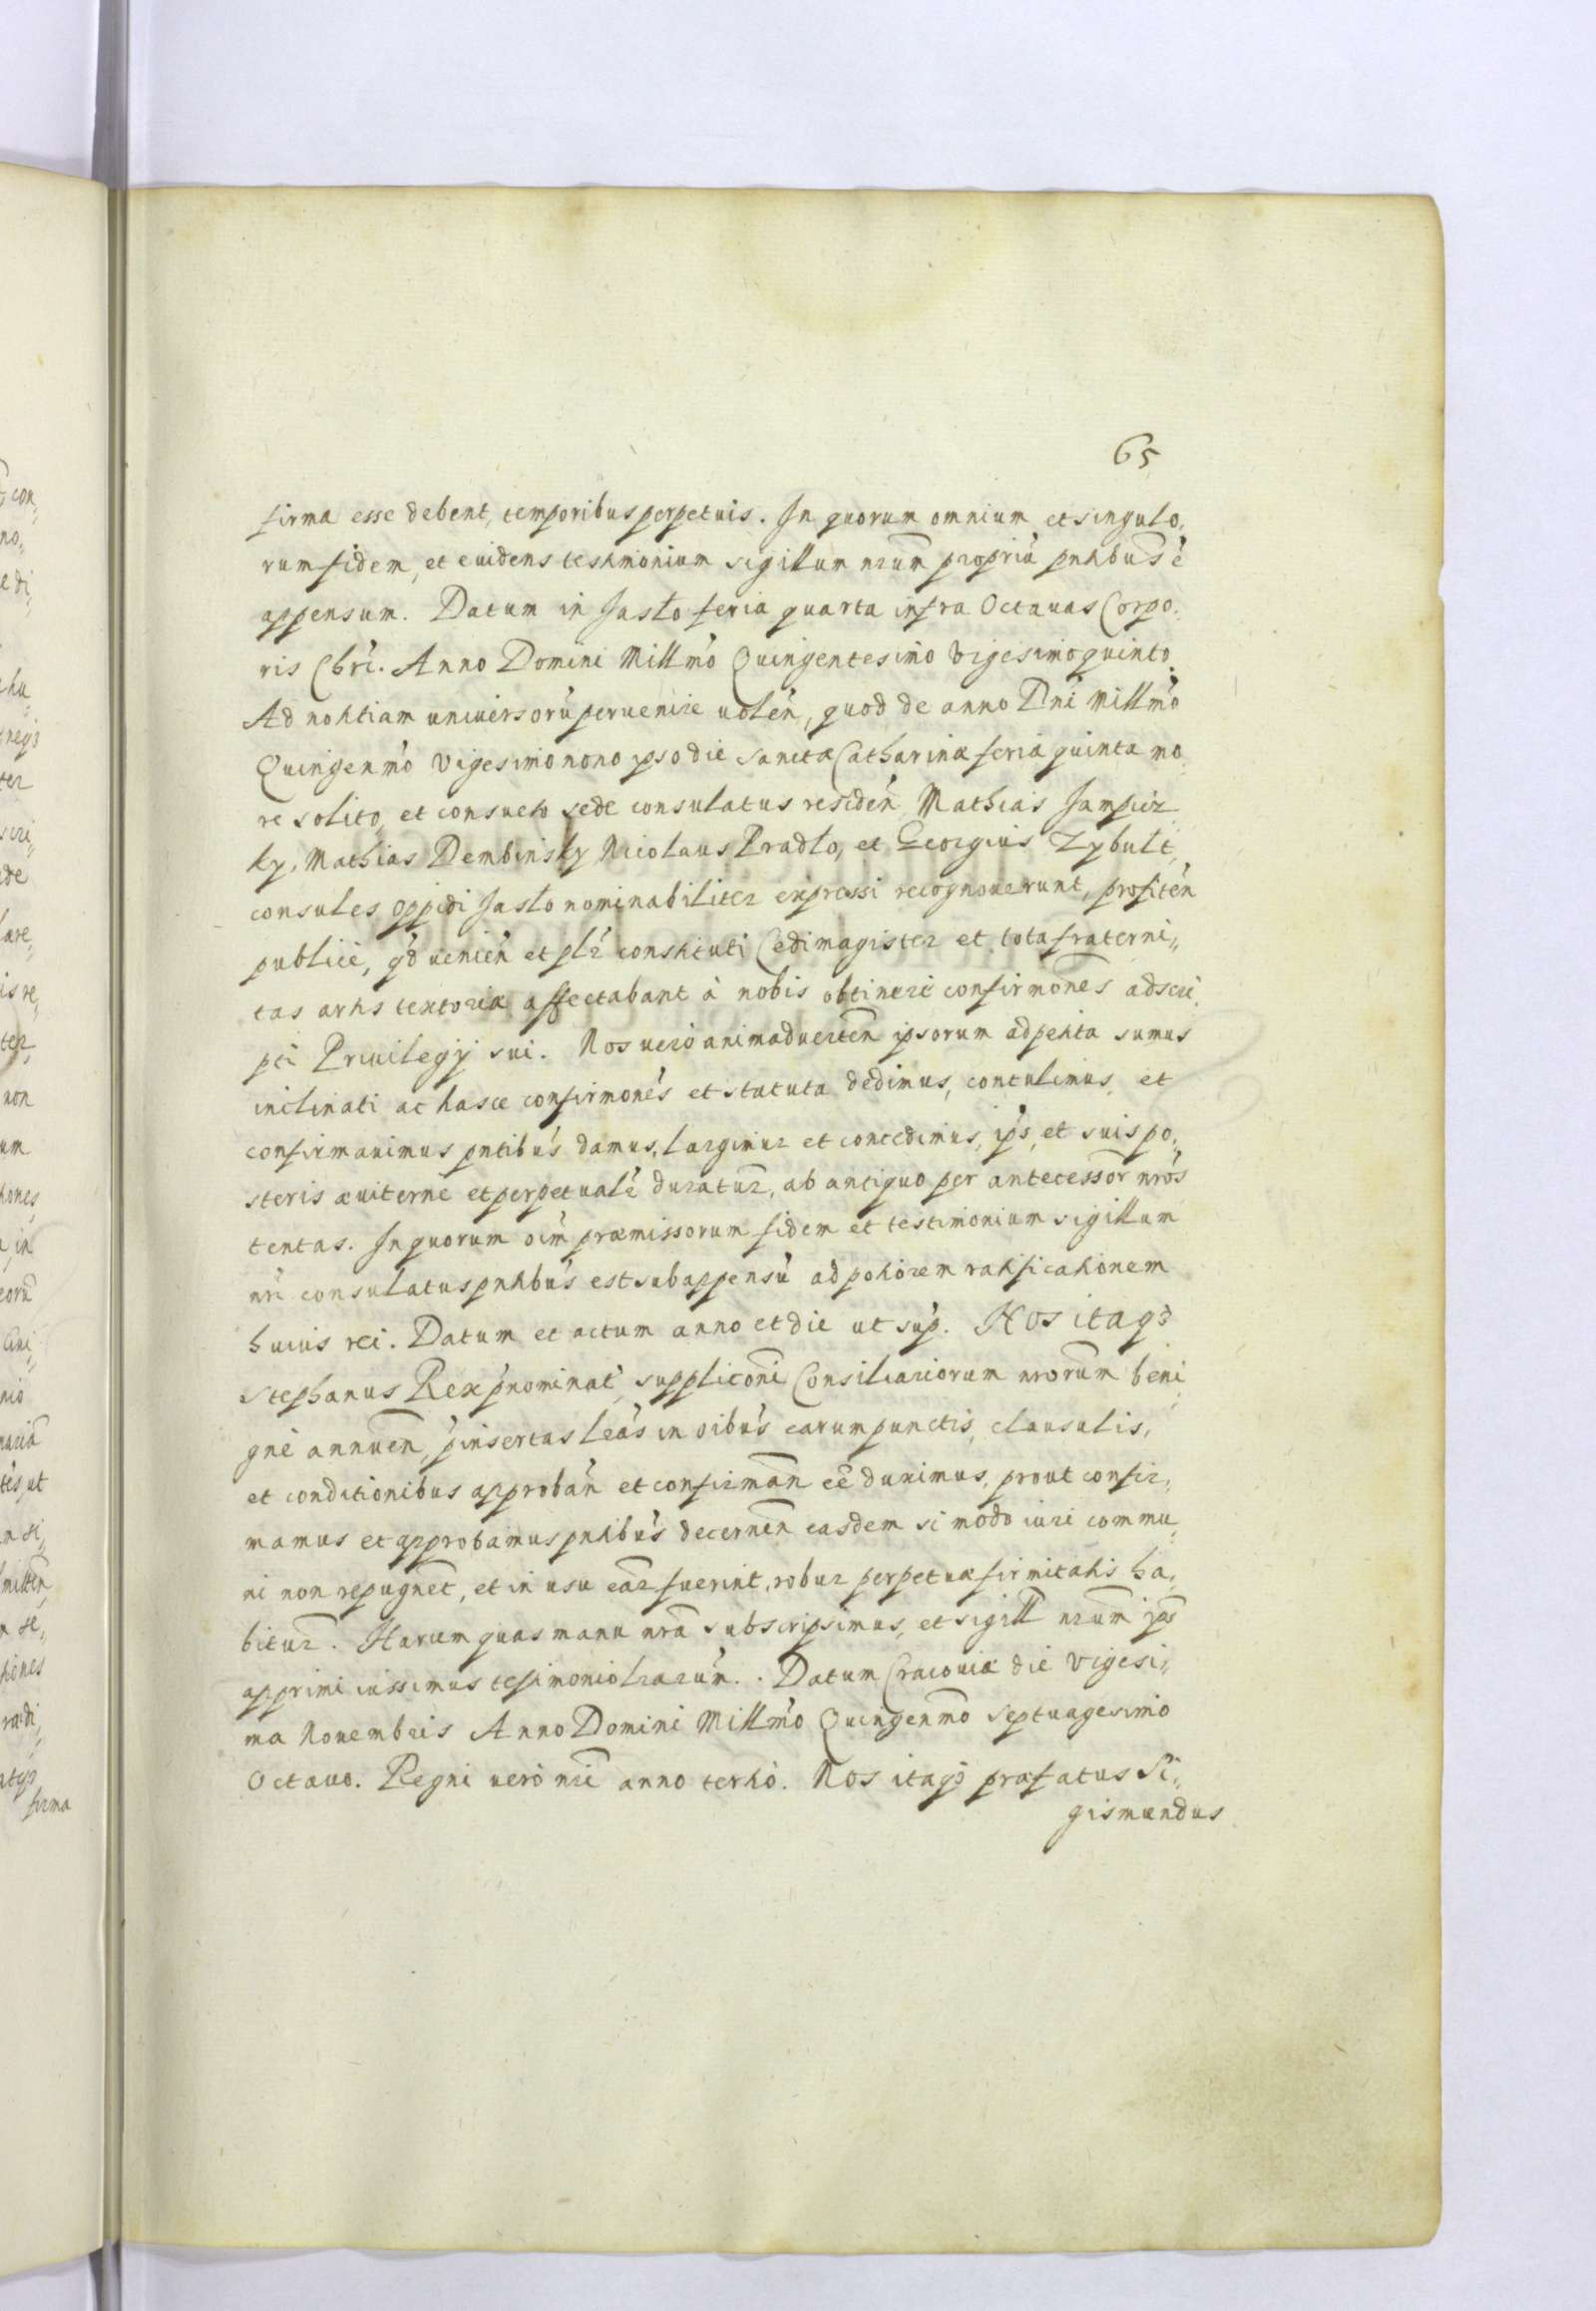 65
firma esse debent, temporibus perpetuis. In quorum omnium et singulo„
rum fidem, et euidens testimonium sigillum nrum propriu pntibus ē
appensum. Datum in Jasło feria quarta infra Octauas Corpo„
ris Chri. Anno Domini Millmo Quingentesimo Vigesimo quinto.
Ad notitiam uniuersoru peruenire uolen, quod de anno Dni Millmo
Quingenmo Vigesimo nono ipso die Sanctæ Catharinæ feria quinta mo„
re solito, et consueto sede consulatus residen Mathias
ky, Mathias Dembinsky Nicolaus Pradło, et Georgius Zybult,
consules oppidi Jasło nominabiliter expressi recognouerunt, profiten
publice, qd uenien et plr constituti Cedimagister et tota fraterni„
tas artis textoriæ affectabant à nobis obtinere confirmones adscri„
pti Priuilegij sui. Nos uero animaduerten ipsorum adpetita sumus
inclinati ac hasce confirmones et statuta dedimus, contulimus, et
confirmauimus pntibus damus, largimur et concedimus, ips, et suis po„
steris æuiterne et perpetuale duratur, ab antiquo per antecessor nros
tentas. In quorum oim præmissorum fidem et testimonium sigillum
nri consulatus pntibus est subappensu ad potiorem ratificationem
huius rei. Datum et actum anno et die ut sup. Nos itaq3
Stephanus Rex pnominat supplicōni Consiliariorum nrorum beni„
gne annuen, pinsertas lras in oibus earum punctis, clausulis,
et conditionibus approban et confirman eē duximus, prout confir„
mamus et approbamus pntibus decernen easdem si modo iuri commu„
ni non repugnet, et in usu ear fuerint, robur perpetuæ firmitatis ha„
bitur. Harum quas manu nra subscripsimus, et sigill nrum ips
apprimi iussimus testimonio lrarum. Datum Cracouiæ die Vigesi„
ma Nouembris Anno Domini Millmo Quingenmo Septuagesimo
Octauo. Regni uero nri anno tertio. Nos itaq3 præfatus Si„
gismundus